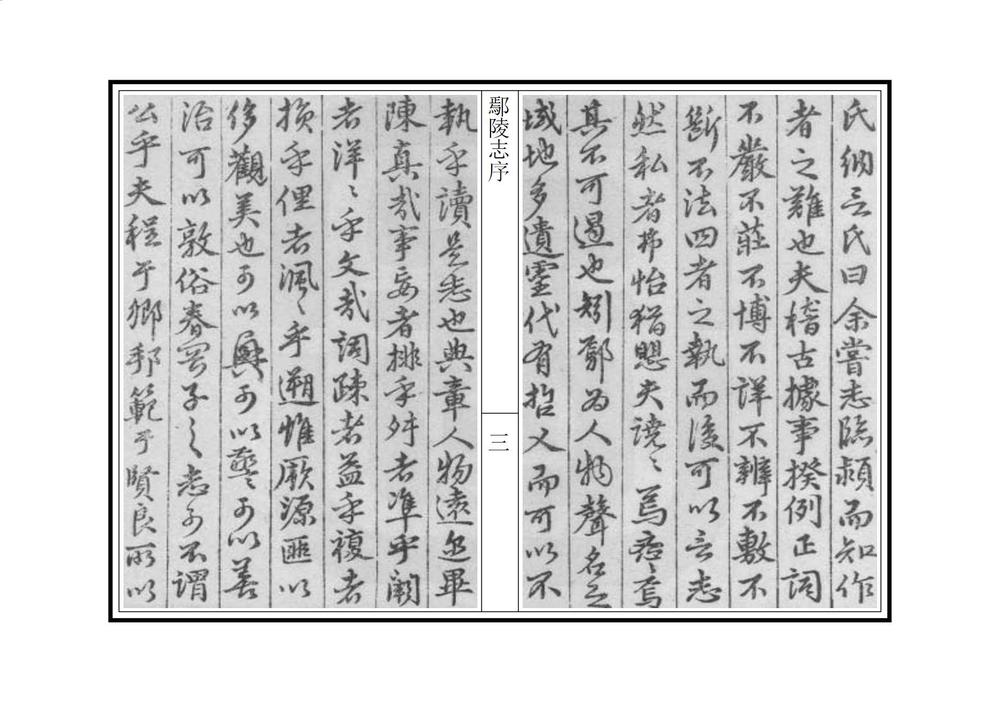 氏納言氏曰余嘗志臨潁而知作
者之難也夫稽古據事揆例正詞
不嚴不莊不博不詳不辨不敷不
斷不法四者之執而後可以言志
然私者怫怡猶愳夫譊〻焉嘵〻焉
其不可遏也矧鄢為人物聲名之
域地多遺靈代有哲人而可以不
鄢陵志序
三
執乎讀是志也典章人物遠近畢
陳真哉事妄者排乎舛者準乎闕
者洋〻乎文哉詞疎者益乎複者
損乎俚者渢〻乎遡惟厥源匪以
侈觀美也可以興可以警可以善
治可以敦俗春官子之志可不謂
公乎夫程于鄉邦範于賢良所以